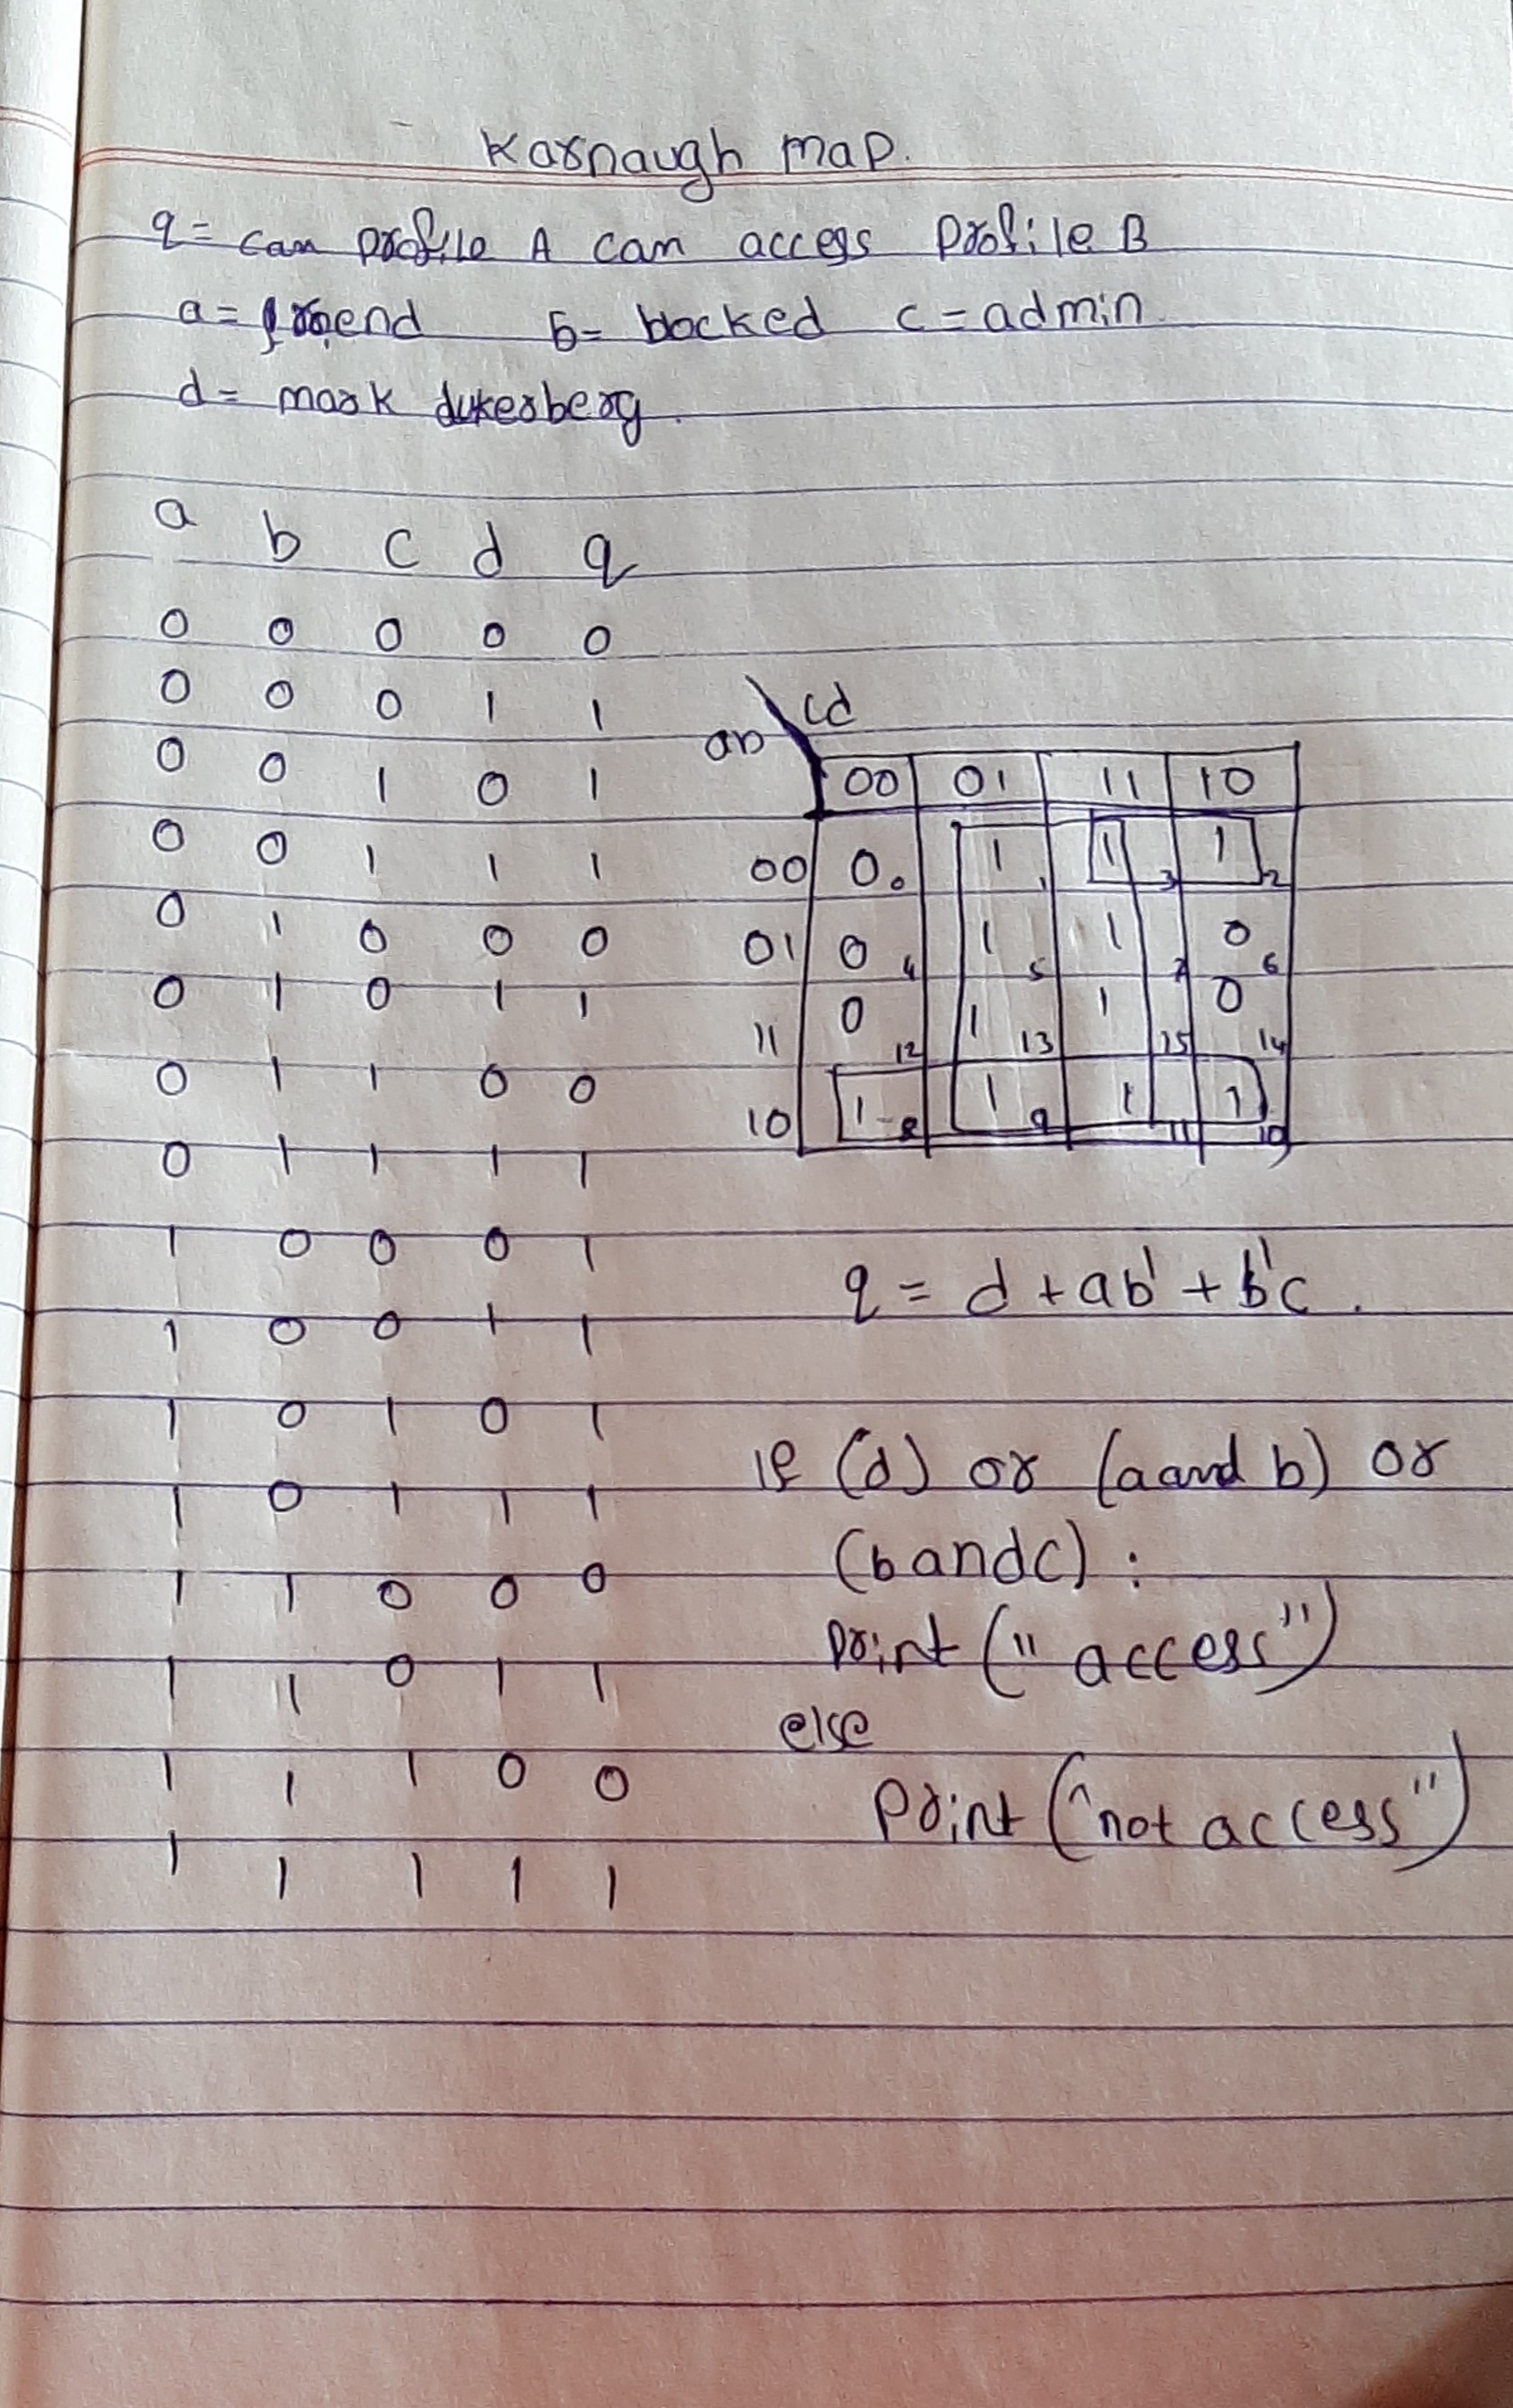 Karnaugh map.
q = can profile A can access profile B
a = friend b = blocked c = admin
d = mark dukerberg.
a b c d q
0 0 0 0 0
0 0 0 1 1
0 0 1 0 1
0 0 1 1 1
0 1 0 0 0
0 1 0 1 1
0 1 1 0 0
0 1 1 1 1
1 0 0 0 1
1 0 0 1 1
1 0 1 0 1
1 0 1 1 1
1 1 0 0 0
1 1 0 1 1
1 1 1 0 0
1 1 1 1 1
cd
ab
00 01 11 10
00 0 0 1 1 1 3 1 2
01 0 4 1 5 1 7 0 6
11 0 12 1 13 1 15 0 14
10 1 8 1 9 1 11 1 10
q = d + ab' + b'c .
if (d) or (a and b) or
(b and c) :
print (" access")
else
print ("not access")